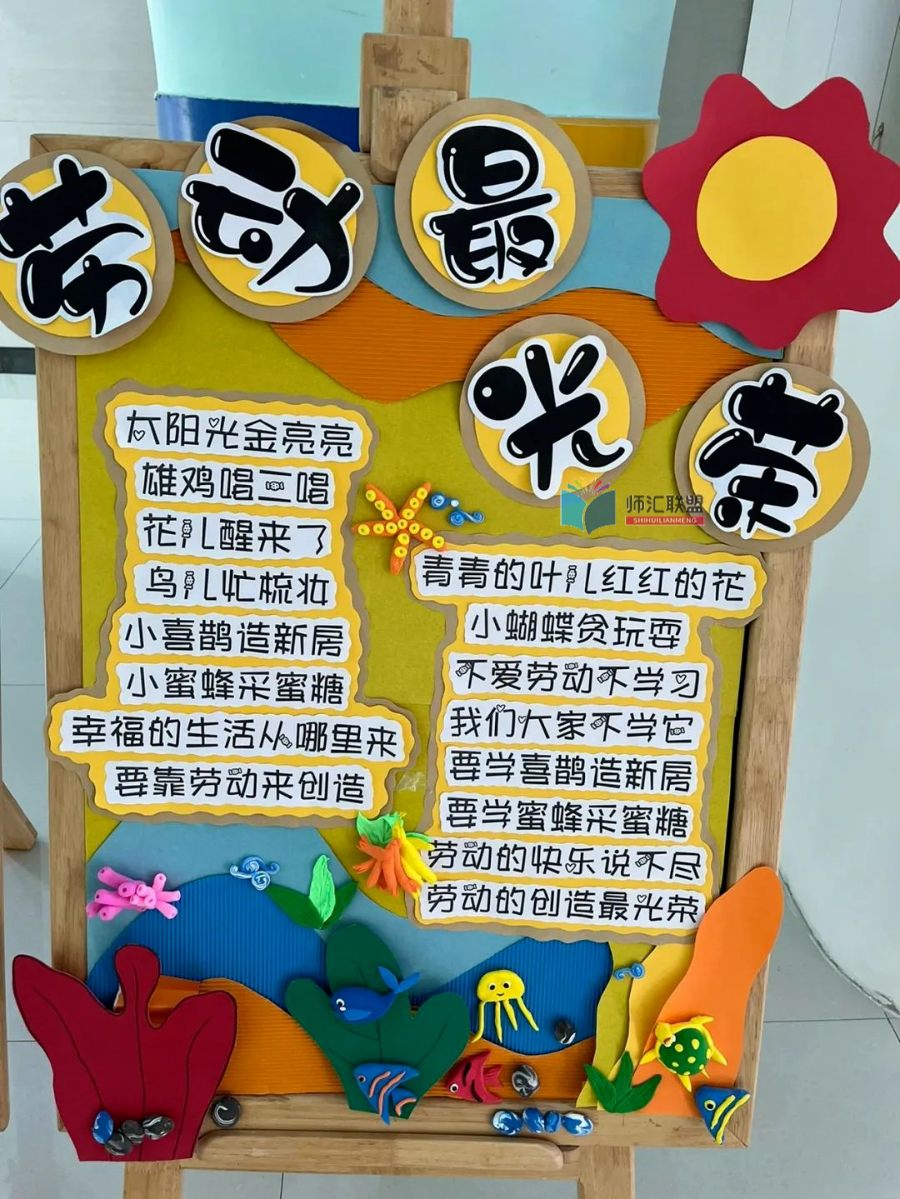 劳动最
光荣
太阳光金亮亮
雄鸡唱三唱
花儿醒来了
鸟儿忙梳妆
小喜鹊造新房
小蜜蜂采蜜糖
幸福的生活从哪里来
要靠劳动来创造
师汇联盟
SHIHUILIANMENG
青青的叶儿红红的花
小蝴蝶贪玩耍
不爱劳动不学习
我们大家不学它
要学喜鹊造新房
要学蜜蜂采蜜糖
劳动的快乐说不尽
劳动的创造最光荣